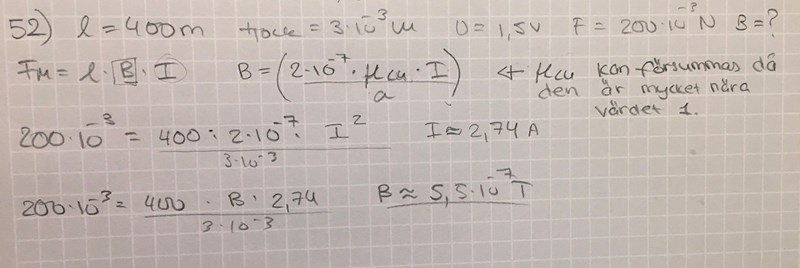 52) l = 400m tjock = 3·10⁻³ m U = 1,5V F = 200·10⁻³ N B = ?
Fm = l · B · I B = (2·10⁻⁷ · μcu · I / a) ← μcu kan försummas då
den är mycket nära
värdet 1.
200·10⁻³ = 400 · 2·10⁻⁷ · I² / 3·10⁻³ I ≈ 2,74 A
200·10⁻³ = 400 · B · 2,74 / 3·10⁻³ B ≈ 5,5·10⁻⁷ T